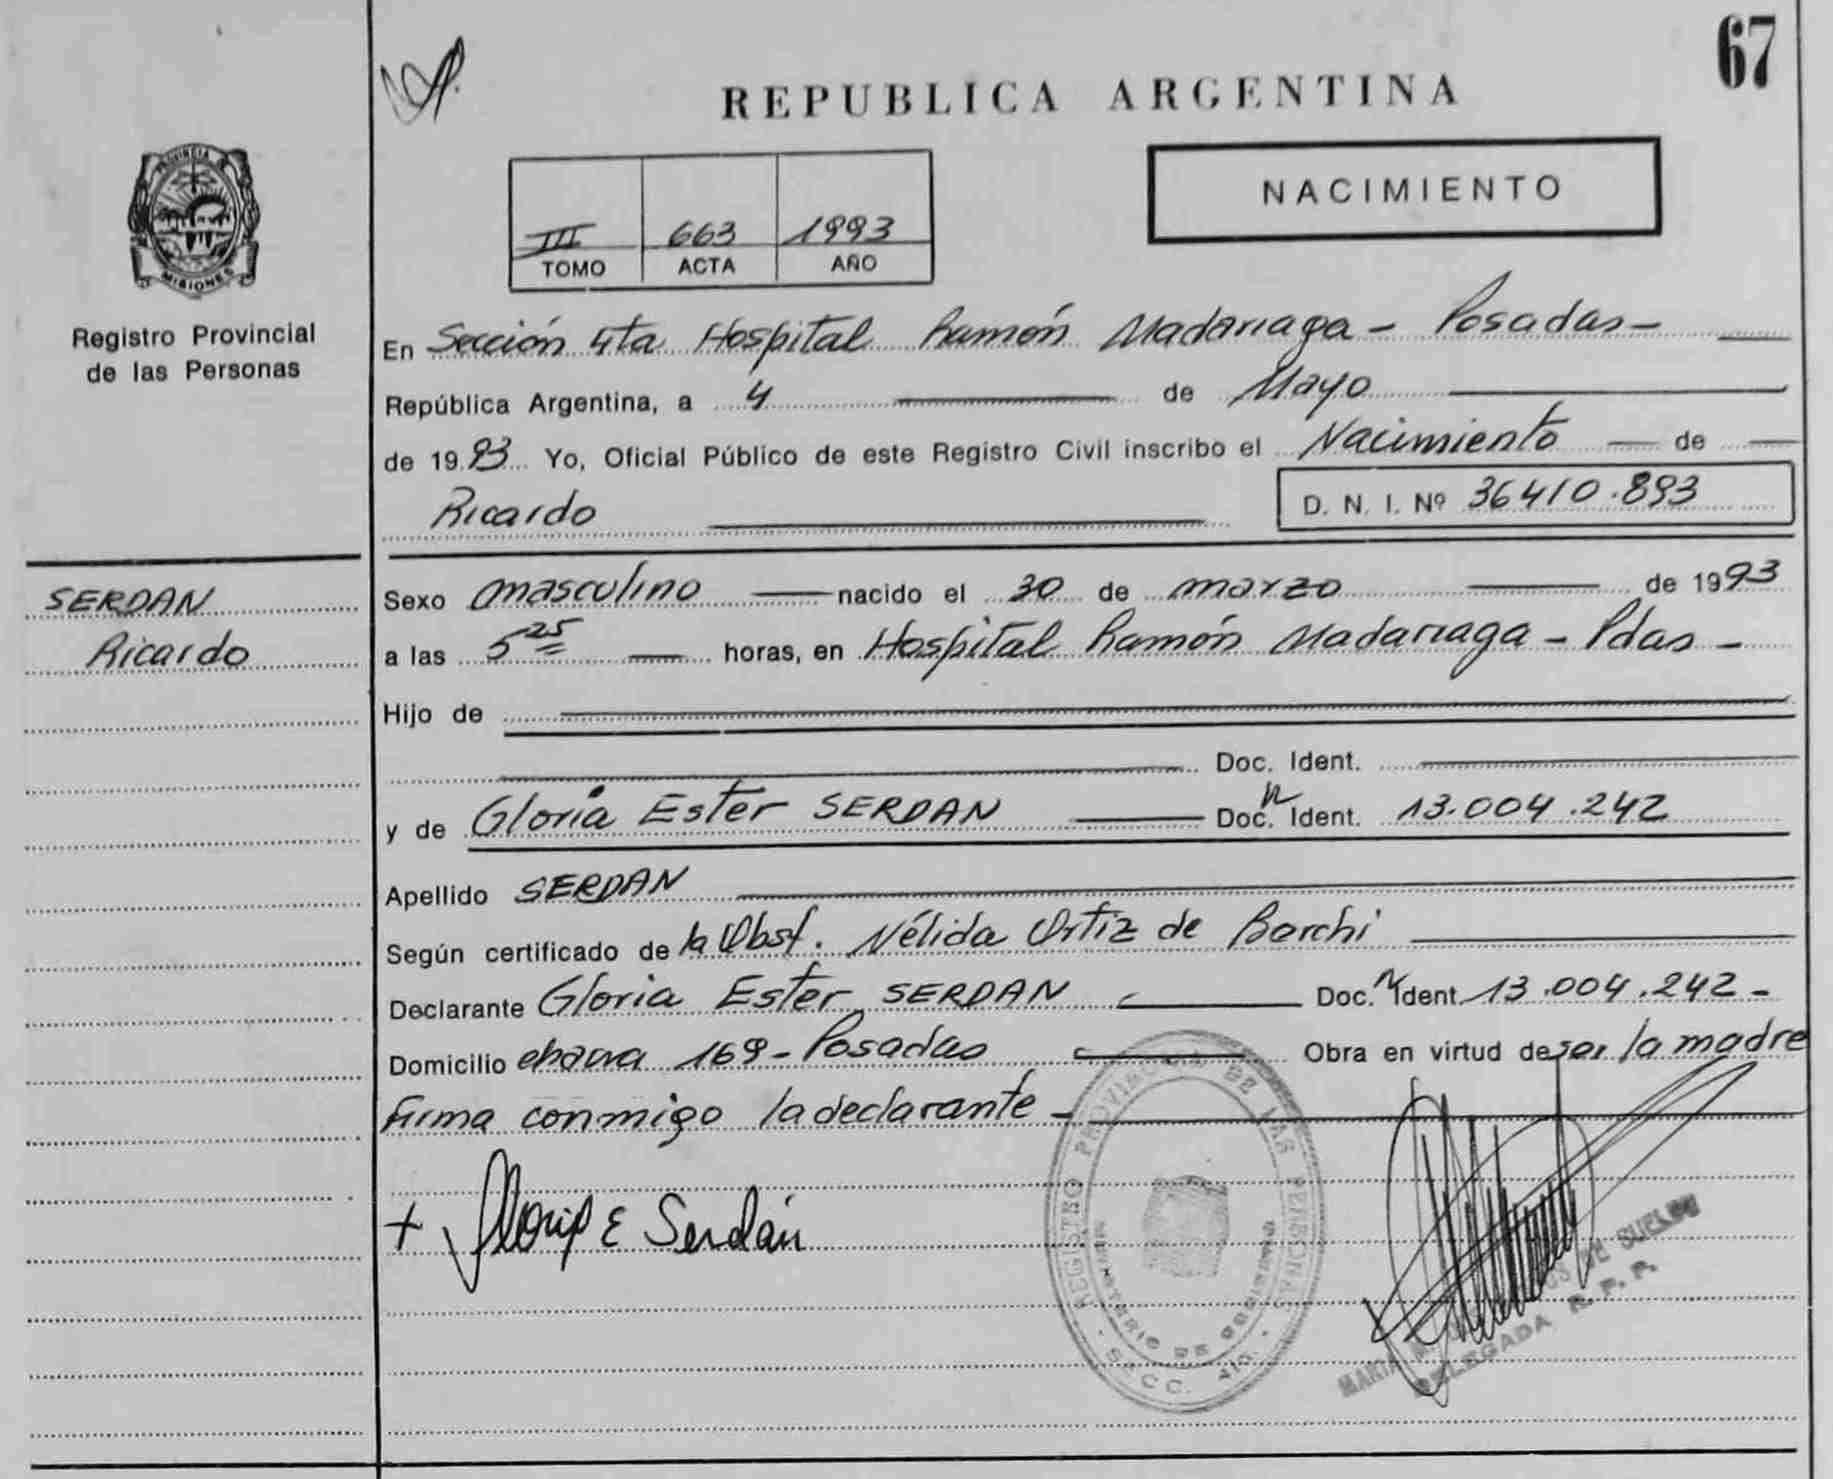 67
REPUBLICA ARGENTINA
NACIMIENTO
PROVINCIA DE
MISIONES
Registro Provincial
de las Personas
III 663 1993
TOMO ACTA AÑO
En Sección 4ta Hospital Ramón Madariaga - Posadas -
República Argentina, a 4 de Mayo
de 1993 Yo, Oficial Público de este Registro Civil inscribo el Nacimiento de
Ricardo D. N. I. Nº 36410.893
SERDAN
Ricardo
Sexo masculino nacido el 30 de marzo de 1993
a las 5 25 horas, en Hospital Ramón Madariaga - Pdas -
Hijo de
Doc. Ident.
y de Gloria Ester SERDAN Doc. Ident. 13.004.242
Apellido SERDAN
Según certificado de la Obst. Nélida Ortiz de Borchi
Declarante Gloria Ester SERDAN Doc. Ident. 13.004.242 -
Domicilio 169 - Posadas Obra en virtud de ser la madre
Firma conmigo la declarante -
+ Gloria E Serdán
REGISTRO PROVINCIAL DE LAS PERSONAS
MINISTERIO DE GOBIERNO
SECC. 4ta.
MARIA DE SUELDO
DELEGADA R. P. P.